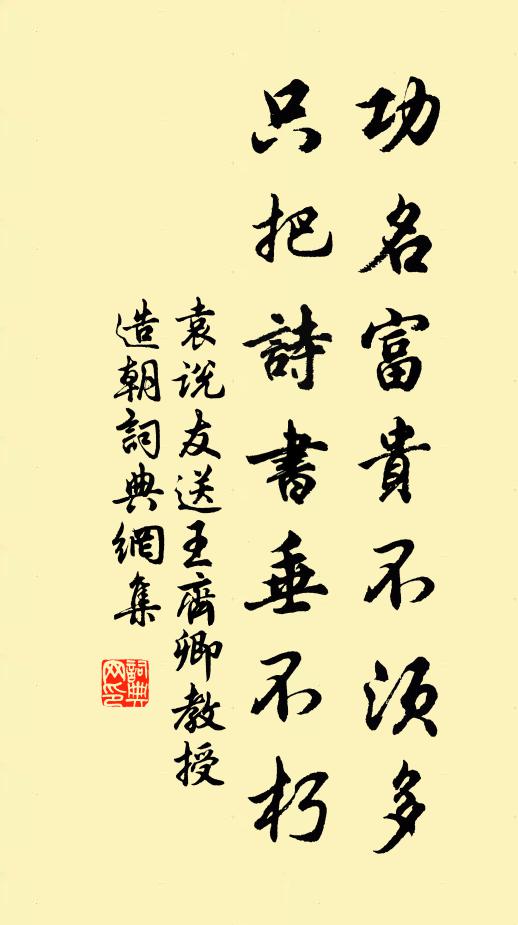 功名富貴不須多
只把詩書垂不朽
袁说友送王齊卿教授
造朝詞典網集
詞典网印